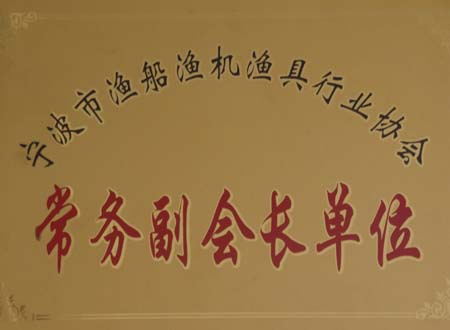 宁波市渔船渔机渔具行业协会
常务副会长单位